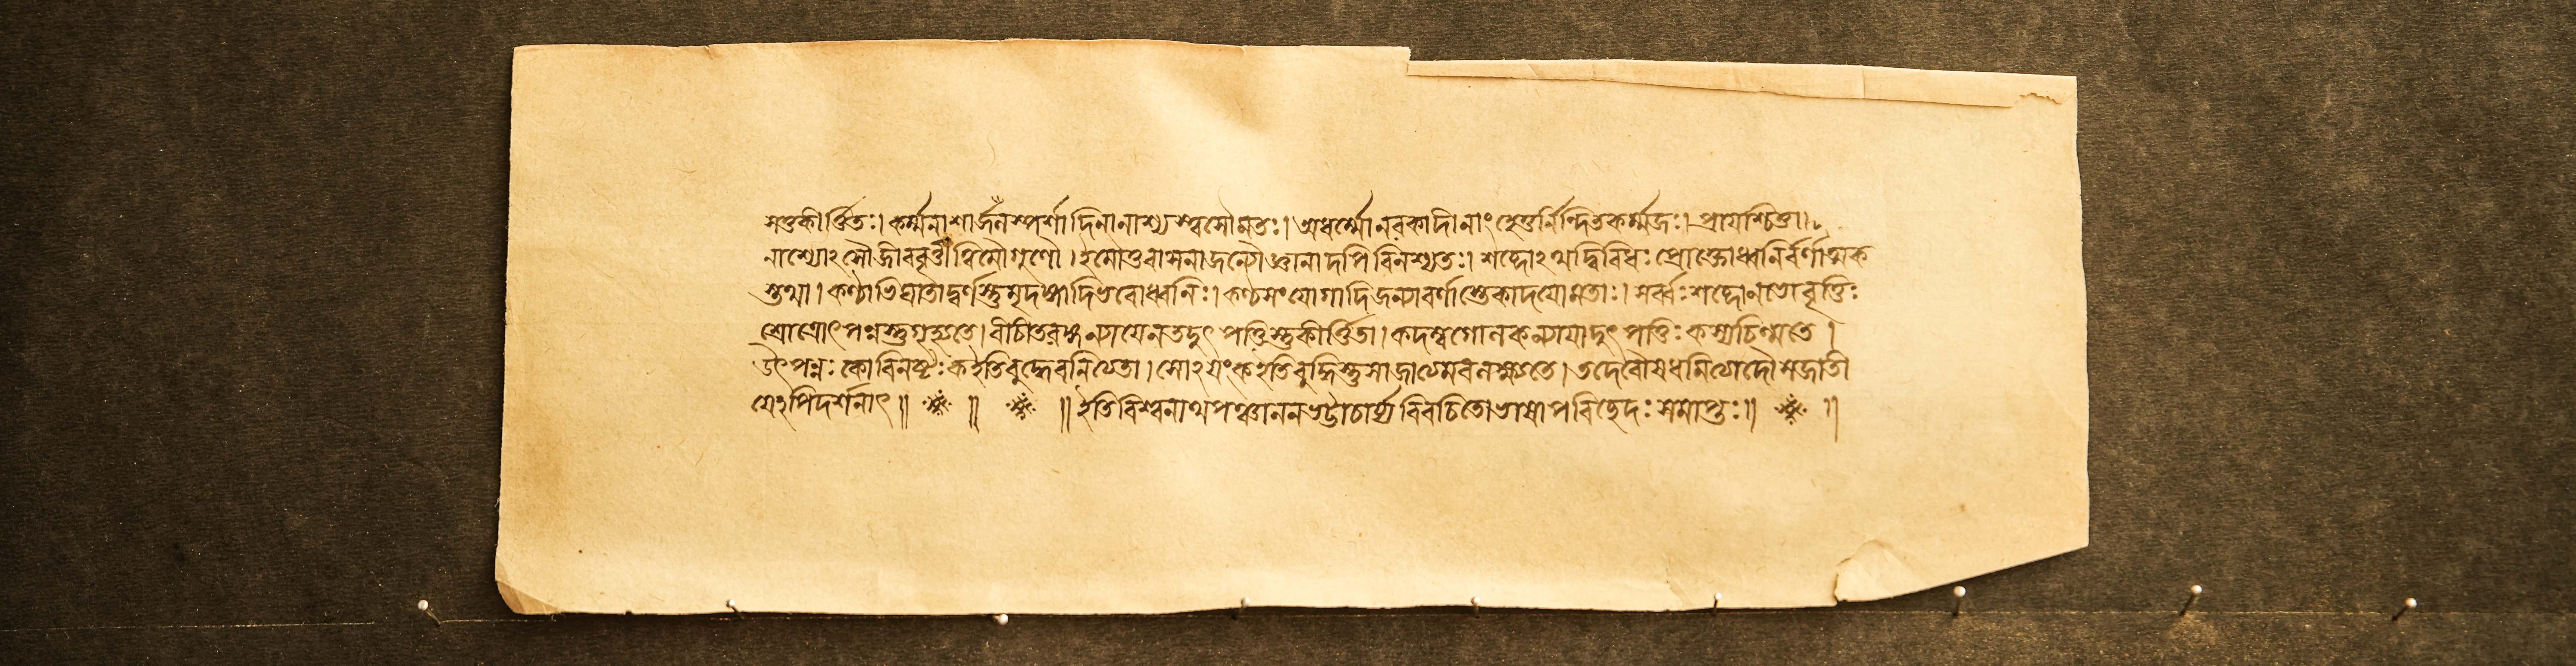 সতুকীর্ত্তিতঃ। কর্ম্মনাশাজলস্পর্শাদিনানাশ্যস্ত্বসৌমতঃ। অধর্ম্মোনরকাদীনাং হেতুর্নিন্দিতকর্ম্মজঃ। প্রায়শ্চিত্তা।
নাশ্যোঽসৌজীববৃত্তীত্বিমৌগুণৌ। ইমৌতুবাসনাজন্যৌজ্ঞানাদপিবিনশ্যতঃ। শব্দোঽথদ্বিবিধঃ প্রোক্তোধ্বনির্বর্ণাত্মক
স্তথা। কণ্ঠাভিঘাতাদ্বর্ণস্তুমৃদঙ্গাদিভবোধ্বনিঃ। কণ্ঠসংযোগাদিজন্যাবর্ণাস্তেকাদয়োমতাঃ। সর্ব্বঃশব্দোনভোবৃত্তিঃ
শ্রোত্রোৎপন্নস্তুগৃহ্যতে। বীচীতরঙ্গন্যায়েনতদুৎপত্তিস্তুকীর্ত্তিতা। কদম্বগোলকন্যায়াদুৎপত্তিঃ কস্যচিন্মতে।
উৎপন্নঃ কোবিনষ্টঃ কইতিবুদ্ধেরনিত্যতা। সোঽয়ংকইতিবুদ্ধিস্তুসাজাত্যমবলম্ব্যতে। তদেবৌষধমিত্যাদৌসজাতী
য়েঽপিদর্শনাৎ॥ ॥ ॥ ইতিবিশ্বনাথপঞ্চাননভট্টাচার্য্যবিরচিতোভাষাপরিচ্ছেদঃ সমাপ্তঃ॥ ॥